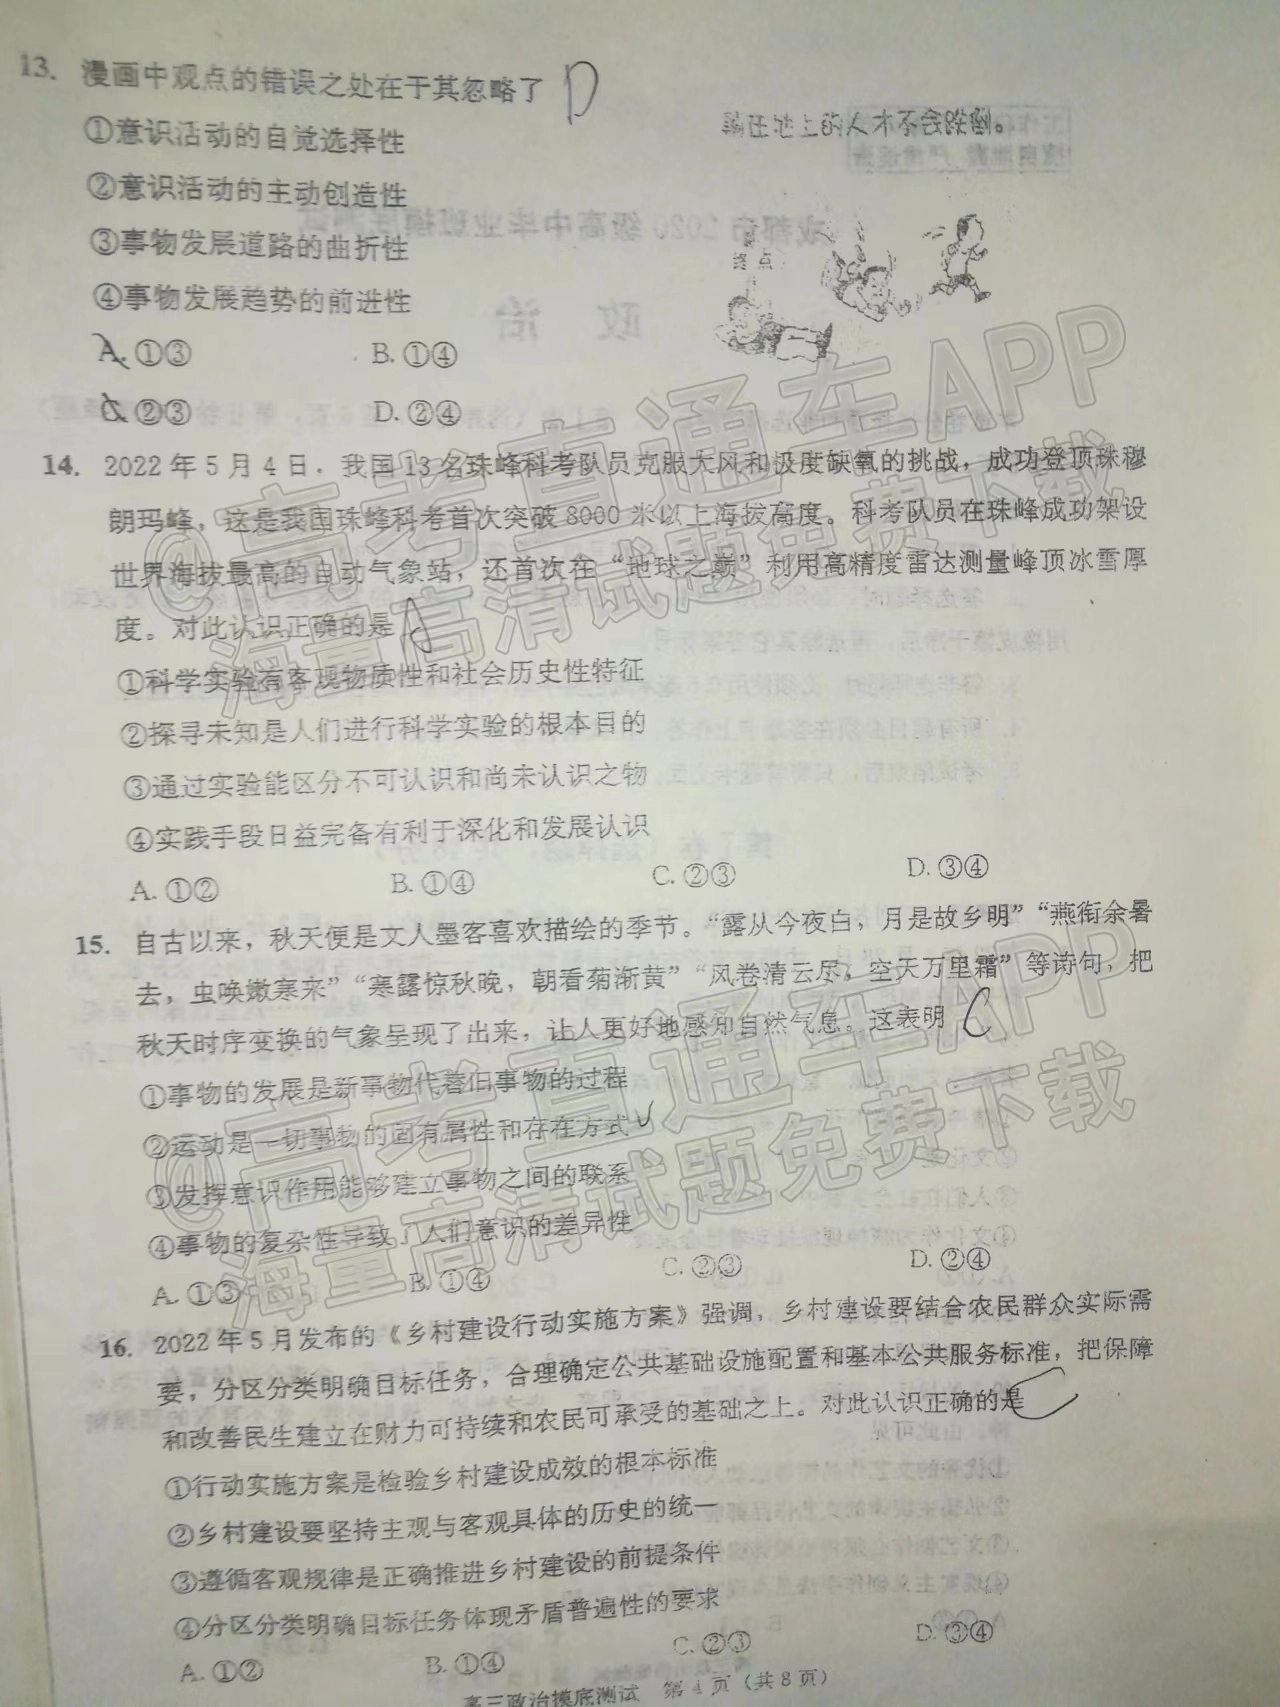 13. 漫画中观点的错误之处在于其忽略了 D
①意识活动的自觉选择性
②意识活动的主动创造性
③事物发展道路的曲折性
④事物发展趋势的前进性
A. ①③
B. ①④
C. ②③
D. ②④
躺在地上的人才不会跌倒。
终点
14. 2022年5月4日，我国13名珠峰科考队员克服大风和极度缺氧的挑战，成功登顶珠穆
朗玛峰，这是我国珠峰科考首次突破8000米以上海拔高度。科考队员在珠峰成功架设
世界海拔最高的自动气象站，还首次在“地球之巅”利用高精度雷达测量峰顶冰雪厚
度。对此认识正确的是
①科学实验有客观物质性和社会历史性特征
②探寻未知是人们进行科学实验的根本目的
③通过实验能区分不可认识和尚未认识之物
④实践手段日益完备有利于深化和发展认识
A. ①②
B. ①④
C. ②③
D. ③④
15. 自古以来，秋天便是文人墨客喜欢描绘的季节。“露从今夜白，月是故乡明”“燕衔余暑
去，虫唤嫩寒来”“寒露惊秋晚，朝看菊渐黄”“风卷清云尽，空天万里霜”等诗句，把
秋天时序变换的气象呈现了出来，让人更好地感知自然气息。这表明 C
①事物的发展是新事物代替旧事物的过程
②运动是一切事物的固有属性和存在方式
③发挥意识作用能够建立事物之间的联系
④事物的复杂性导致了人们意识的差异性
A. ①③
B. ①④
C. ②③
D. ②④
16. 2022年5月发布的《乡村建设行动实施方案》强调，乡村建设要结合农民群众实际需
要，分区分类明确目标任务，合理确定公共基础设施配置和基本公共服务标准，把保障
和改善民生建立在财力可持续和农民可承受的基础之上。对此认识正确的是 C
①行动实施方案是检验乡村建设成效的根本标准
②乡村建设要坚持主观与客观具体的历史的统一
③遵循客观规律是正确推进乡村建设的前提条件
④分区分类明确目标任务体现矛盾普遍性的要求
A. ①②
B. ①④
C. ②③
D. ③④
高三政治摸底测试 第4页（共8页）
@高考直通车APP
海量高清试题免费下载
@高考直通车APP
海量高清试题免费下载